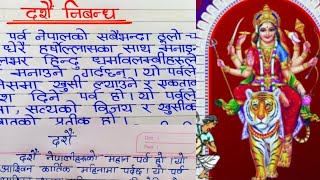 दशैँ निबन्ध
पर्व नेपालको सबैभन्दा ठूलो च
धेरै हर्षोल्लासका साथ मनाइन्
हिन्दु धर्मावलम्बीहरूले
मनाउने गर्दछन् । यो पर्वले
खुसी ल्याउने र एकताव
दिने पर्व हो । यो पर्वले
सत्यको विजय र खुसीक
प्रतीक हो ।
दशैँ
दशैँ नेपालीहरूको महान पर्व हो । यो
आश्विन कार्तिक महिनामा पर्दछ । यो पर्व